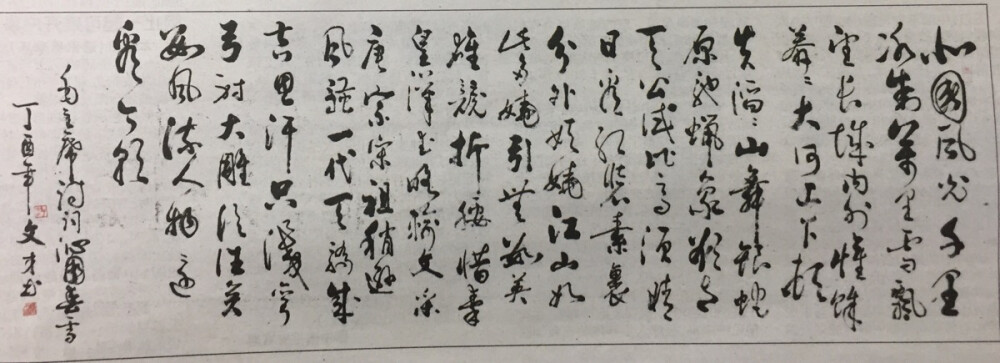 北國風光千里
冰封萬里雪飄
望长城内外惟馀
莽々大河上下顿
失滔々山舞銀蛇
原驰蠟象欲与
天公试比高须晴
日看红装素裹
分外妖娆江山如
此多娇引無数英
雄競折腰惜秦
皇漢武略输文采
唐宗宋祖稍逊
風骚一代天骄成
吉思汗只識弯
弓射大雕俱往矣
数風流人物还
看今朝
毛主席诗词沁園春雪
丁酉年文才书